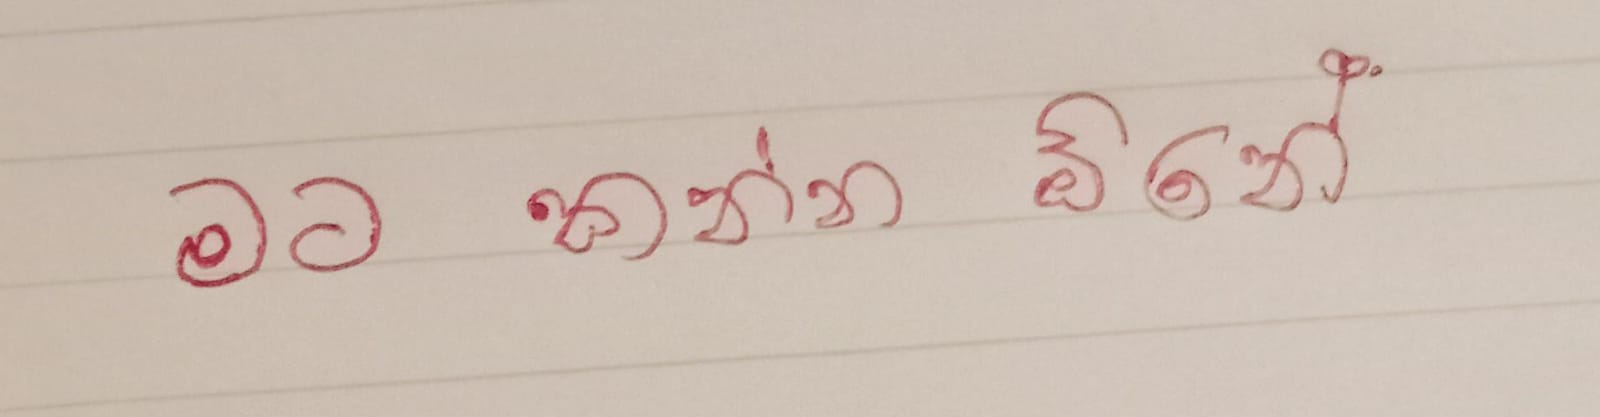 මට කන්න ඕනේ